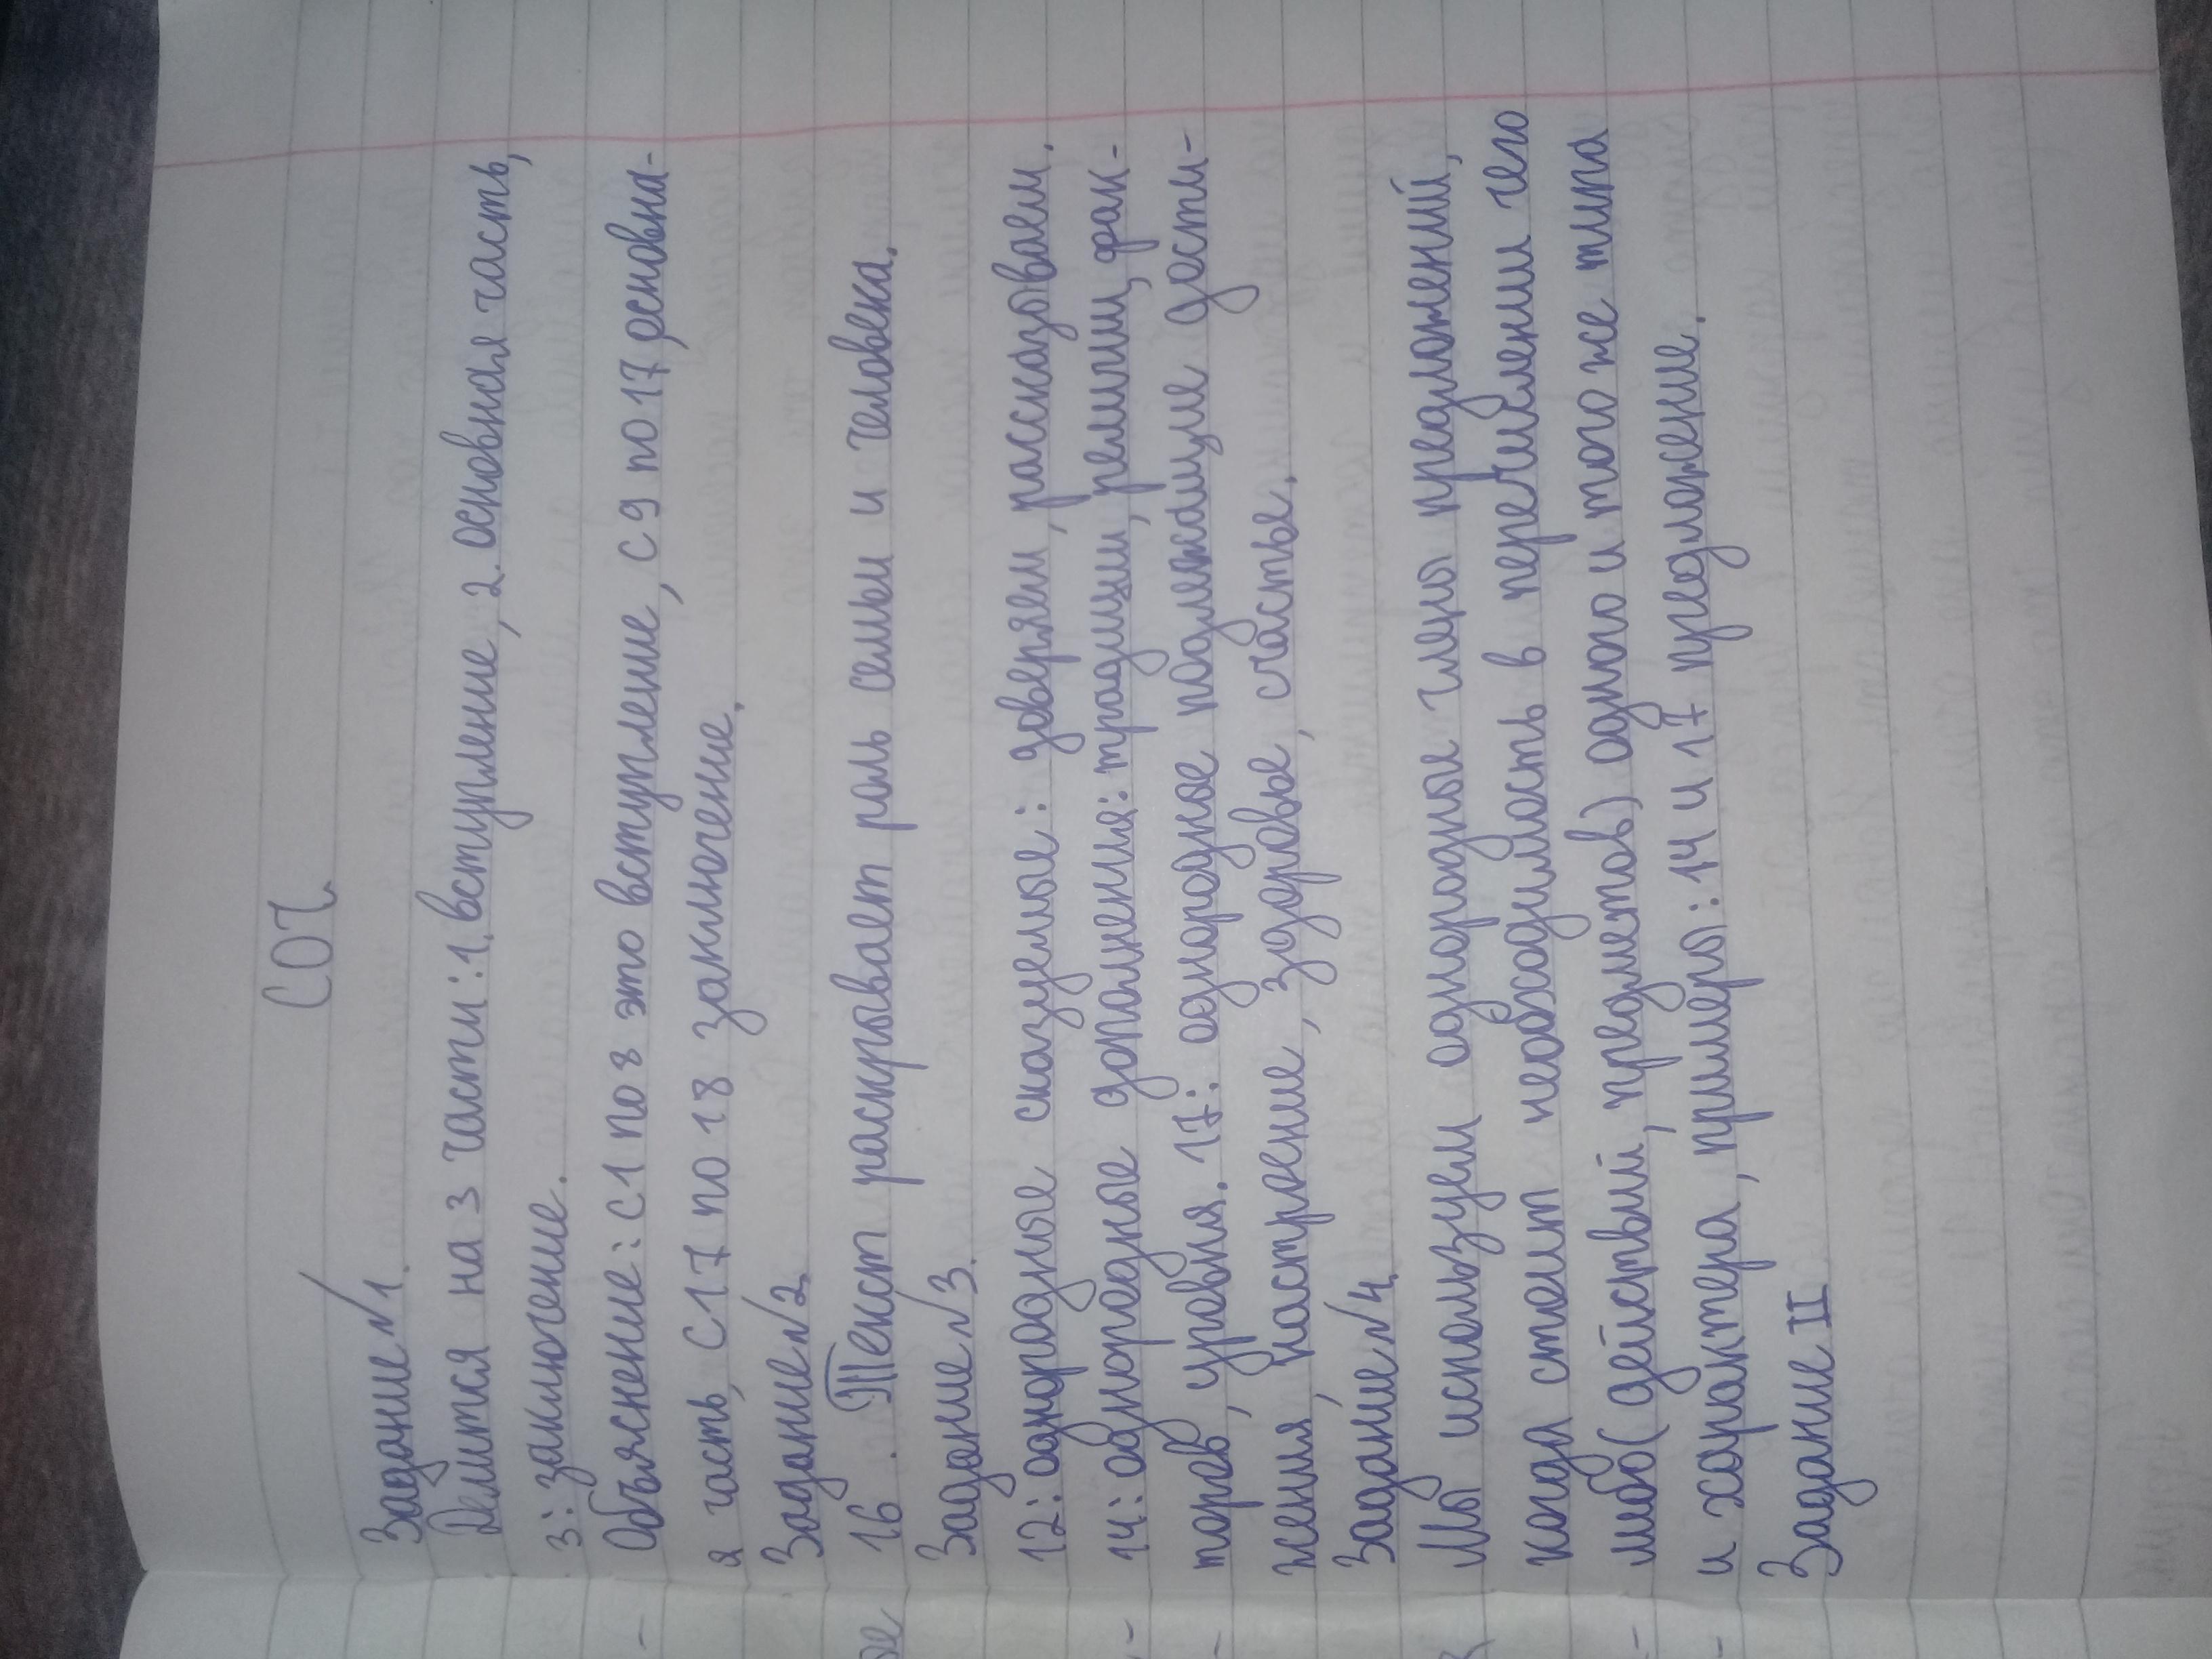 СОЧ
Задание №1.
Делится на 3 части: 1. вступление, 2. основная часть,
3: заключение.
Объяснение: с 1 по 8 это вступление, с 9 по 17 основна-
я часть, с 17 по 18 заключение.
Задание №2.
16. Текст раскрывает роль семьи и человека.
Задание №3.
12: однородные сказуемые: доверяем, рассказоваем.
14: однородные дополнения: традиции, религии, фак-
торов, уровня. 17: однородное подлежащие дости-
жения, настроение, здоровье, счастье.
Задание №4.
Мы используем однородные члены предложений,
когда стоит необходимость в перечислении чего
либо (действий, предметов) одного и того же типа
и характера, примеры: 14 и 17 предложение.
Задание II